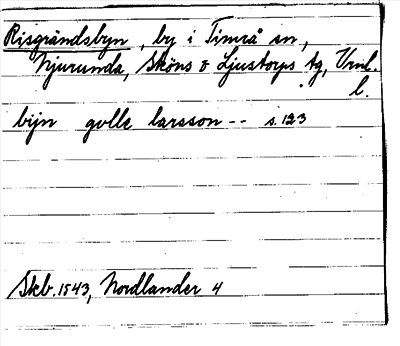 Risgrändsbyn, by i Timrå sn,
Njurunda, Sköns o Ljustorps tg, Vrnl.
l.
bijn golle larsson -- s. 123
Skb. 1543, Nordlander 4